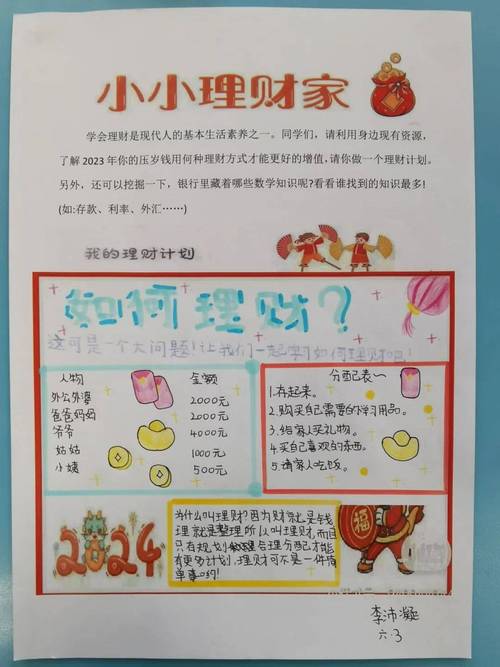 小小理财家
学会理财是现代人的基本生活素养之一。同学们，请利用身边现有资源，
了解2023年你的压岁钱用何种理财方式才能更好的增值，请你做一个理财计划。
另外，还可以挖掘一下，银行里藏着哪些数学知识呢？看看谁找到的知识最多！
(如:存款、利率、外汇……)
我的理财计划
如何理财？
这可是一个大问题！让我们一起学习如何理财吧！
人物 金额
外公外婆 2000元
爸爸妈妈 2000元
爷爷 4000元
姑姑 1000元
小姨 500元
分配表～
1.存起来。
2.购买自己需要的学习用品。
3.给家人买礼物。
4.买自己喜欢的东西。
5.请家人吃饭。
2024
为什么叫理财？因为财就是钱
理就是整理所以叫理财，而且
只有规划合理分配才能
有更多计划，理财可不是一件简
单事哟！
福
李沛凝
六.3